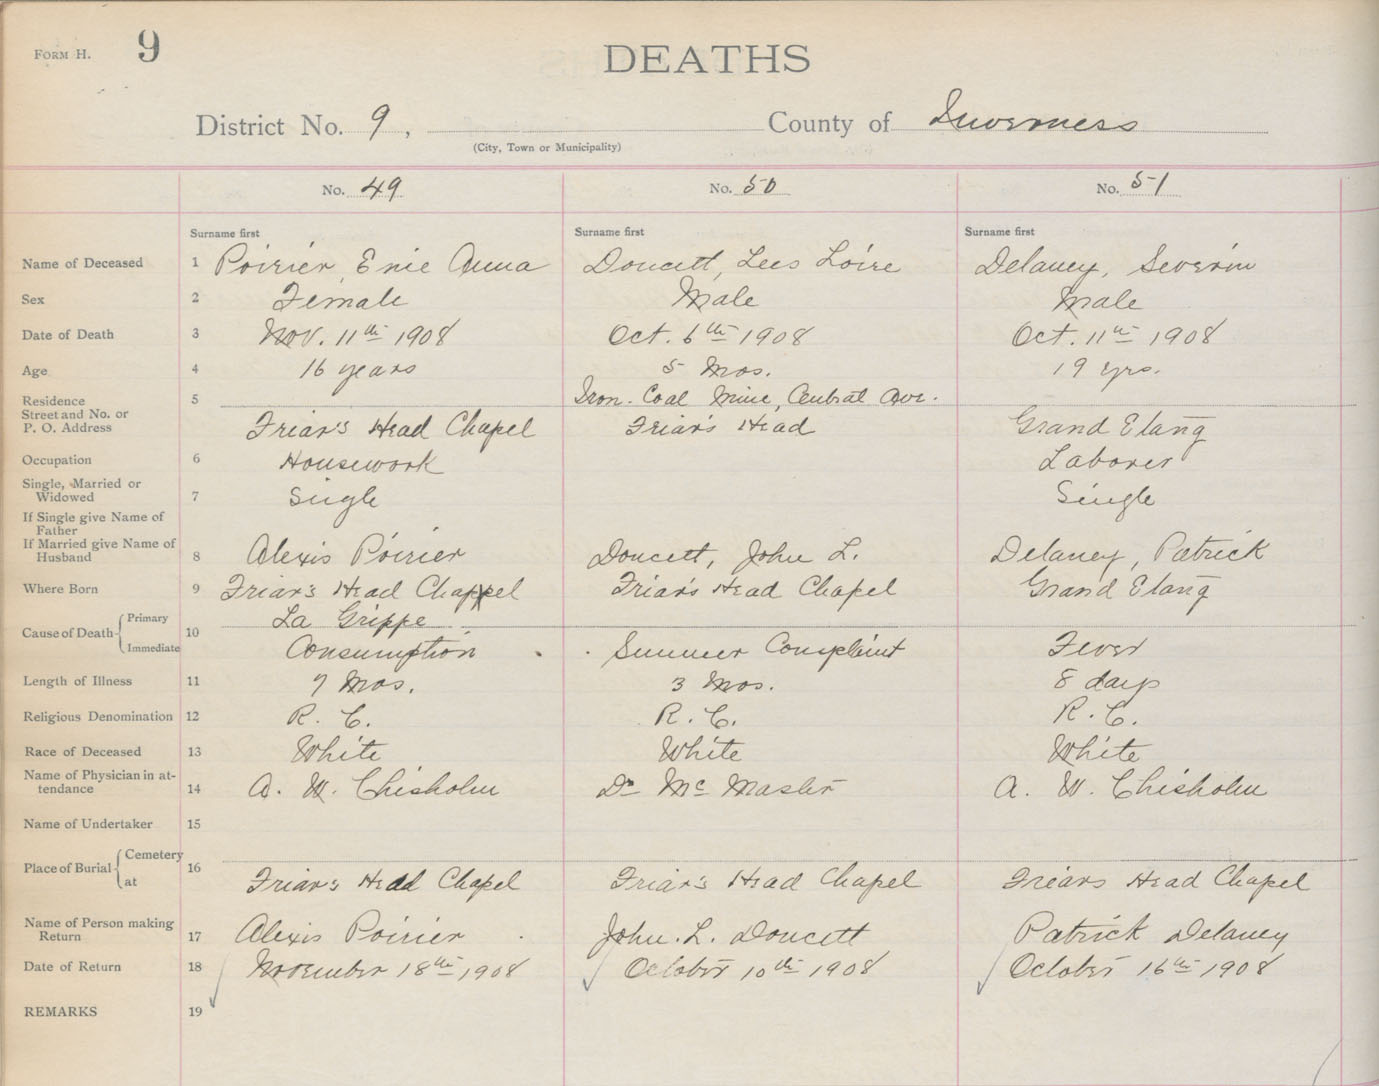 FORM H. 9
DEATHS
District No. 9, County of Inverness
(City, Town or Municipality)
No. 49 No. 50 No. 51
Surname first Surname first Surname first
Name of Deceased 1 Poirier, Enie Anna Doucett, Lees Loire Delaney, Severin
Sex 2 Female Male Male
Date of Death 3 Nov. 11th 1908 Oct. 6th 1908 Oct. 11th 1908
Age 4 16 years 5 Mos. 19 yrs.
Residence 5 Iron - Coal Mine, Central Ave.
Street and No. or
P. O. Address Friar's Head Chapel Friar's Head Grand Etang
Occupation 6 Housework Laborer
Single, Married or
Widowed 7 Single Single
If Single give Name of
Father
If Married give Name of
Husband 8 Alexis Poirier Doucett, John L. Delaney, Patrick
Where Born 9 Friar's Head Chappel Friar's Head Chapel Grand Etang
Cause of Death 10 Primary La Grippe
Immediate Consumption Summer Complaint Fever
Length of Illness 11 7 Mos. 3 Mos. 8 days
Religious Denomination 12 R. C. R. C. R. C.
Race of Deceased 13 White White White
Name of Physician in at-
tendance 14 A. W. Chisholm Dr McMaster A. W. Chisholm
Name of Undertaker 15
Place of Burial 16 Cemetery
at Friar's Head Chapel Friar's Head Chapel Friars Head Chapel
Name of Person making
Return 17 Alexis Poirier John. L. Doucett Patrick Delaney
Date of Return 18 November 18th 1908 October 10th 1908 October 16th 1908
REMARKS 19